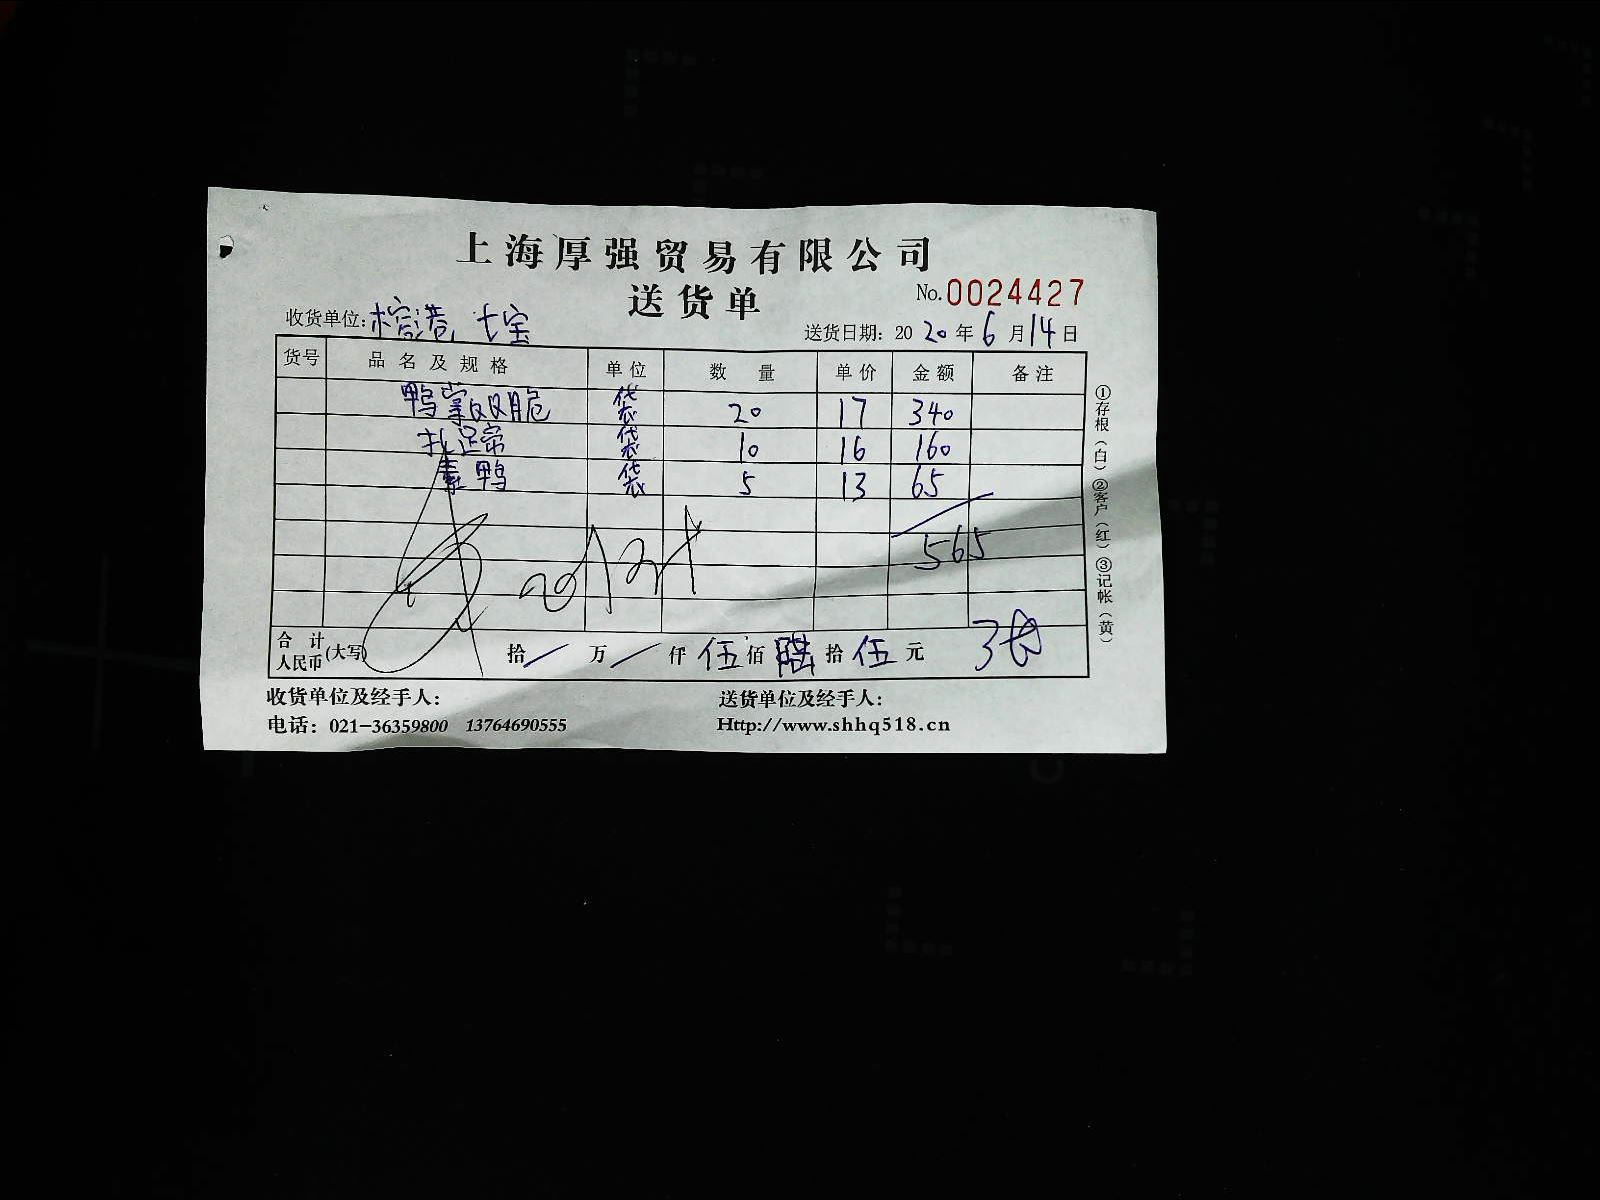 上海厚强贸易有限公司
送货单
No. 0024427
收货单位: 榕港 七宝
送货日期: 2020年6月14日
货号 品名及规格 单位 数量 单价 金额 备注
鸭掌双脆 袋 20 17 340
扎蹄 袋 10 16 160
素鸭 袋 5 13 65
565
合计人民币(大写) 拾/万/仟伍佰陆拾伍元
收货单位及经手人:
送货单位及经手人:
电话: 021-36359800 13764690555
Http://www.shhq518.cn
①存根(白)②客户(红)③记帐(黄)